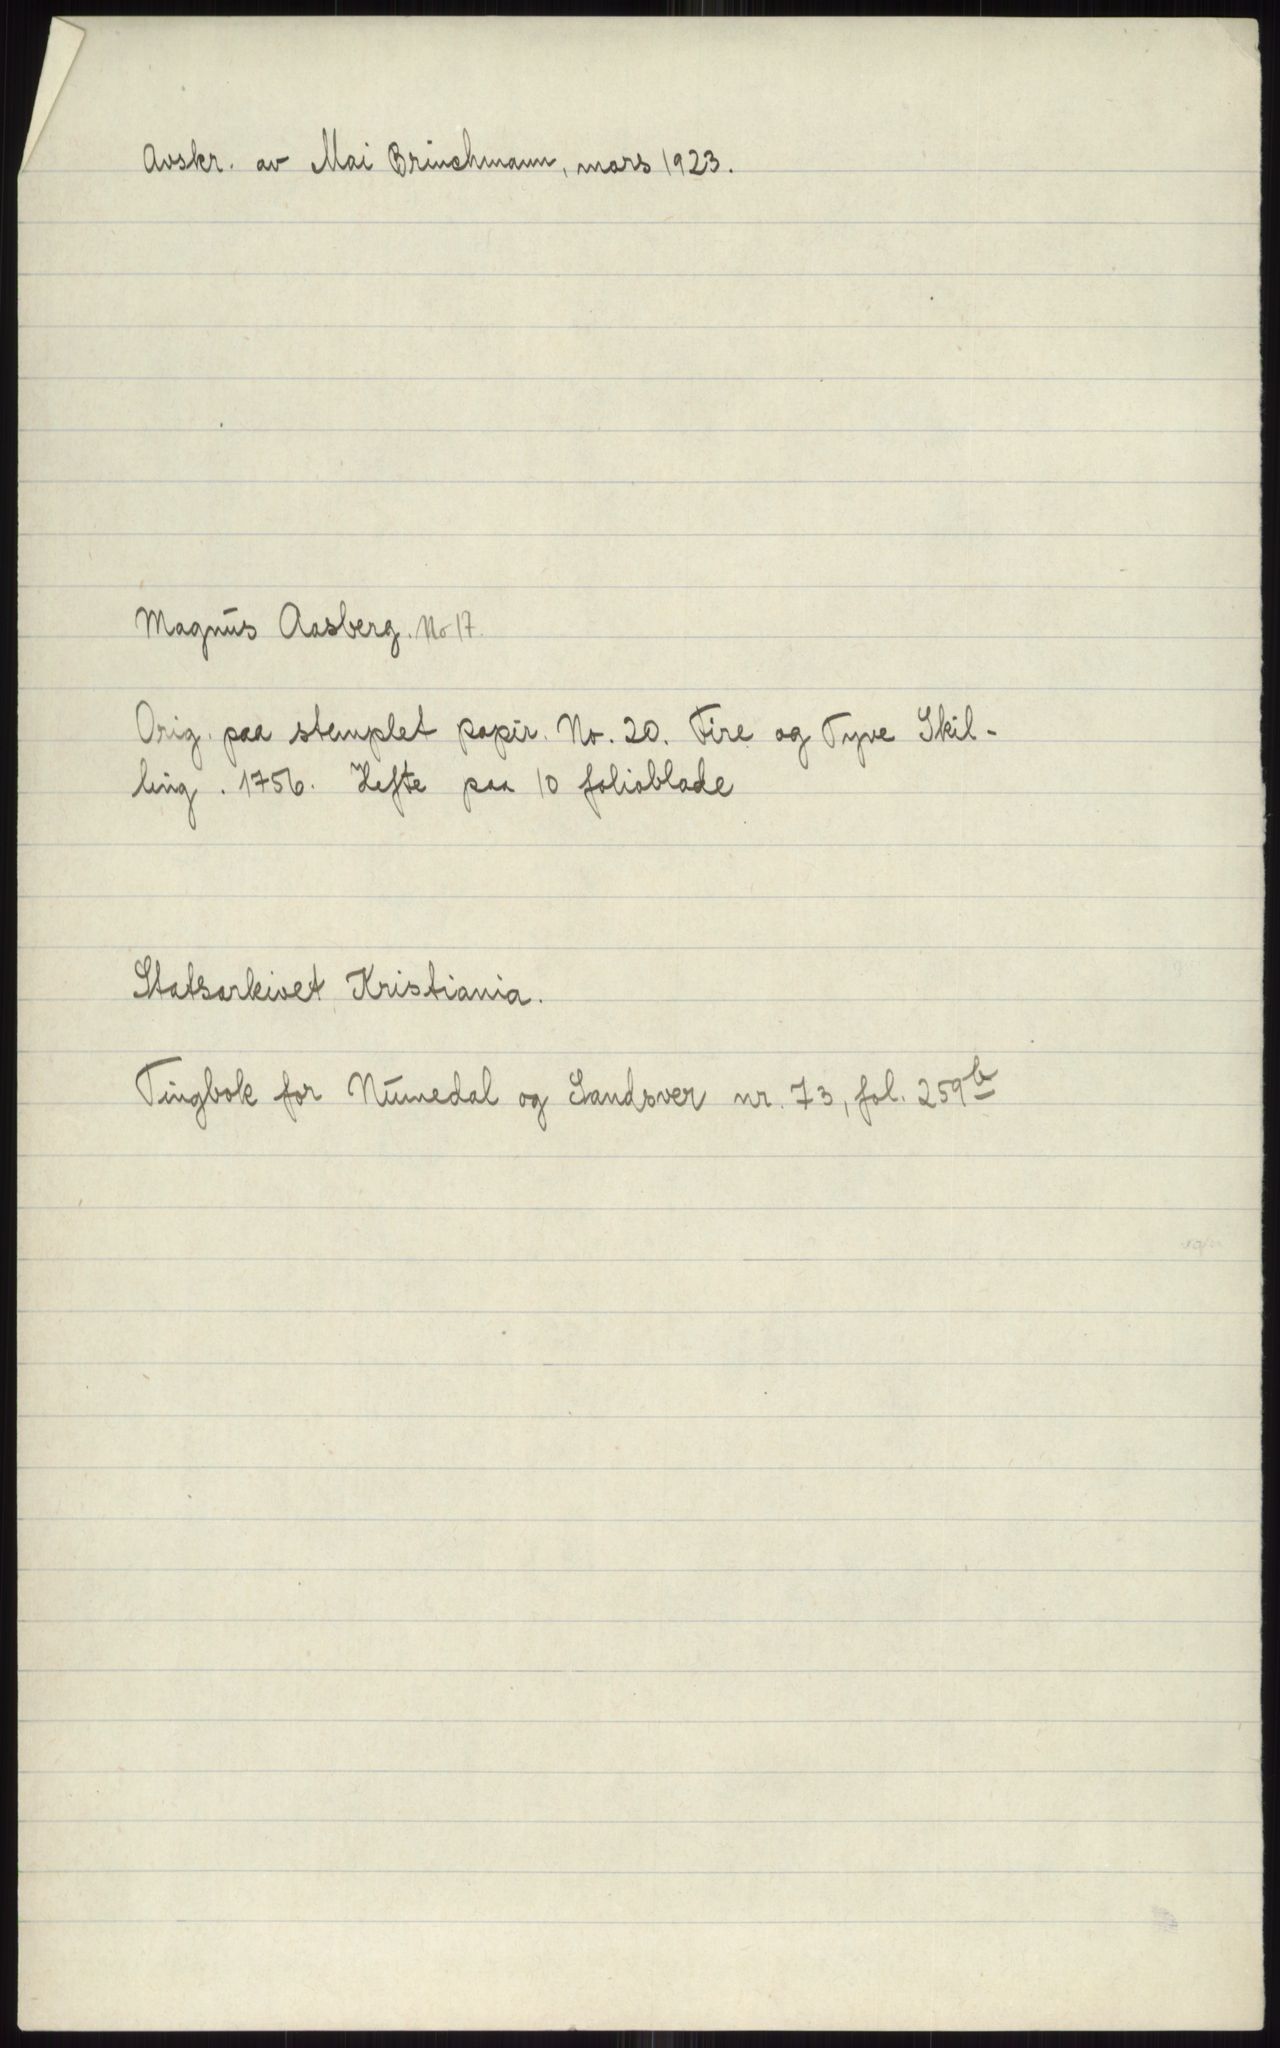 Avskr. av Mai Brinchmann, mars 1923.
Magnus Aasberg. No 17.
Orig. paa stemplet papir. No. 20. Fire og Tyve Skil-
ling. 1756. Hefte paa 10 folioblade
Statsarkivet, Kristiania.
Tingbok for Numedal og Sandsver nr. 73, fol. 259b